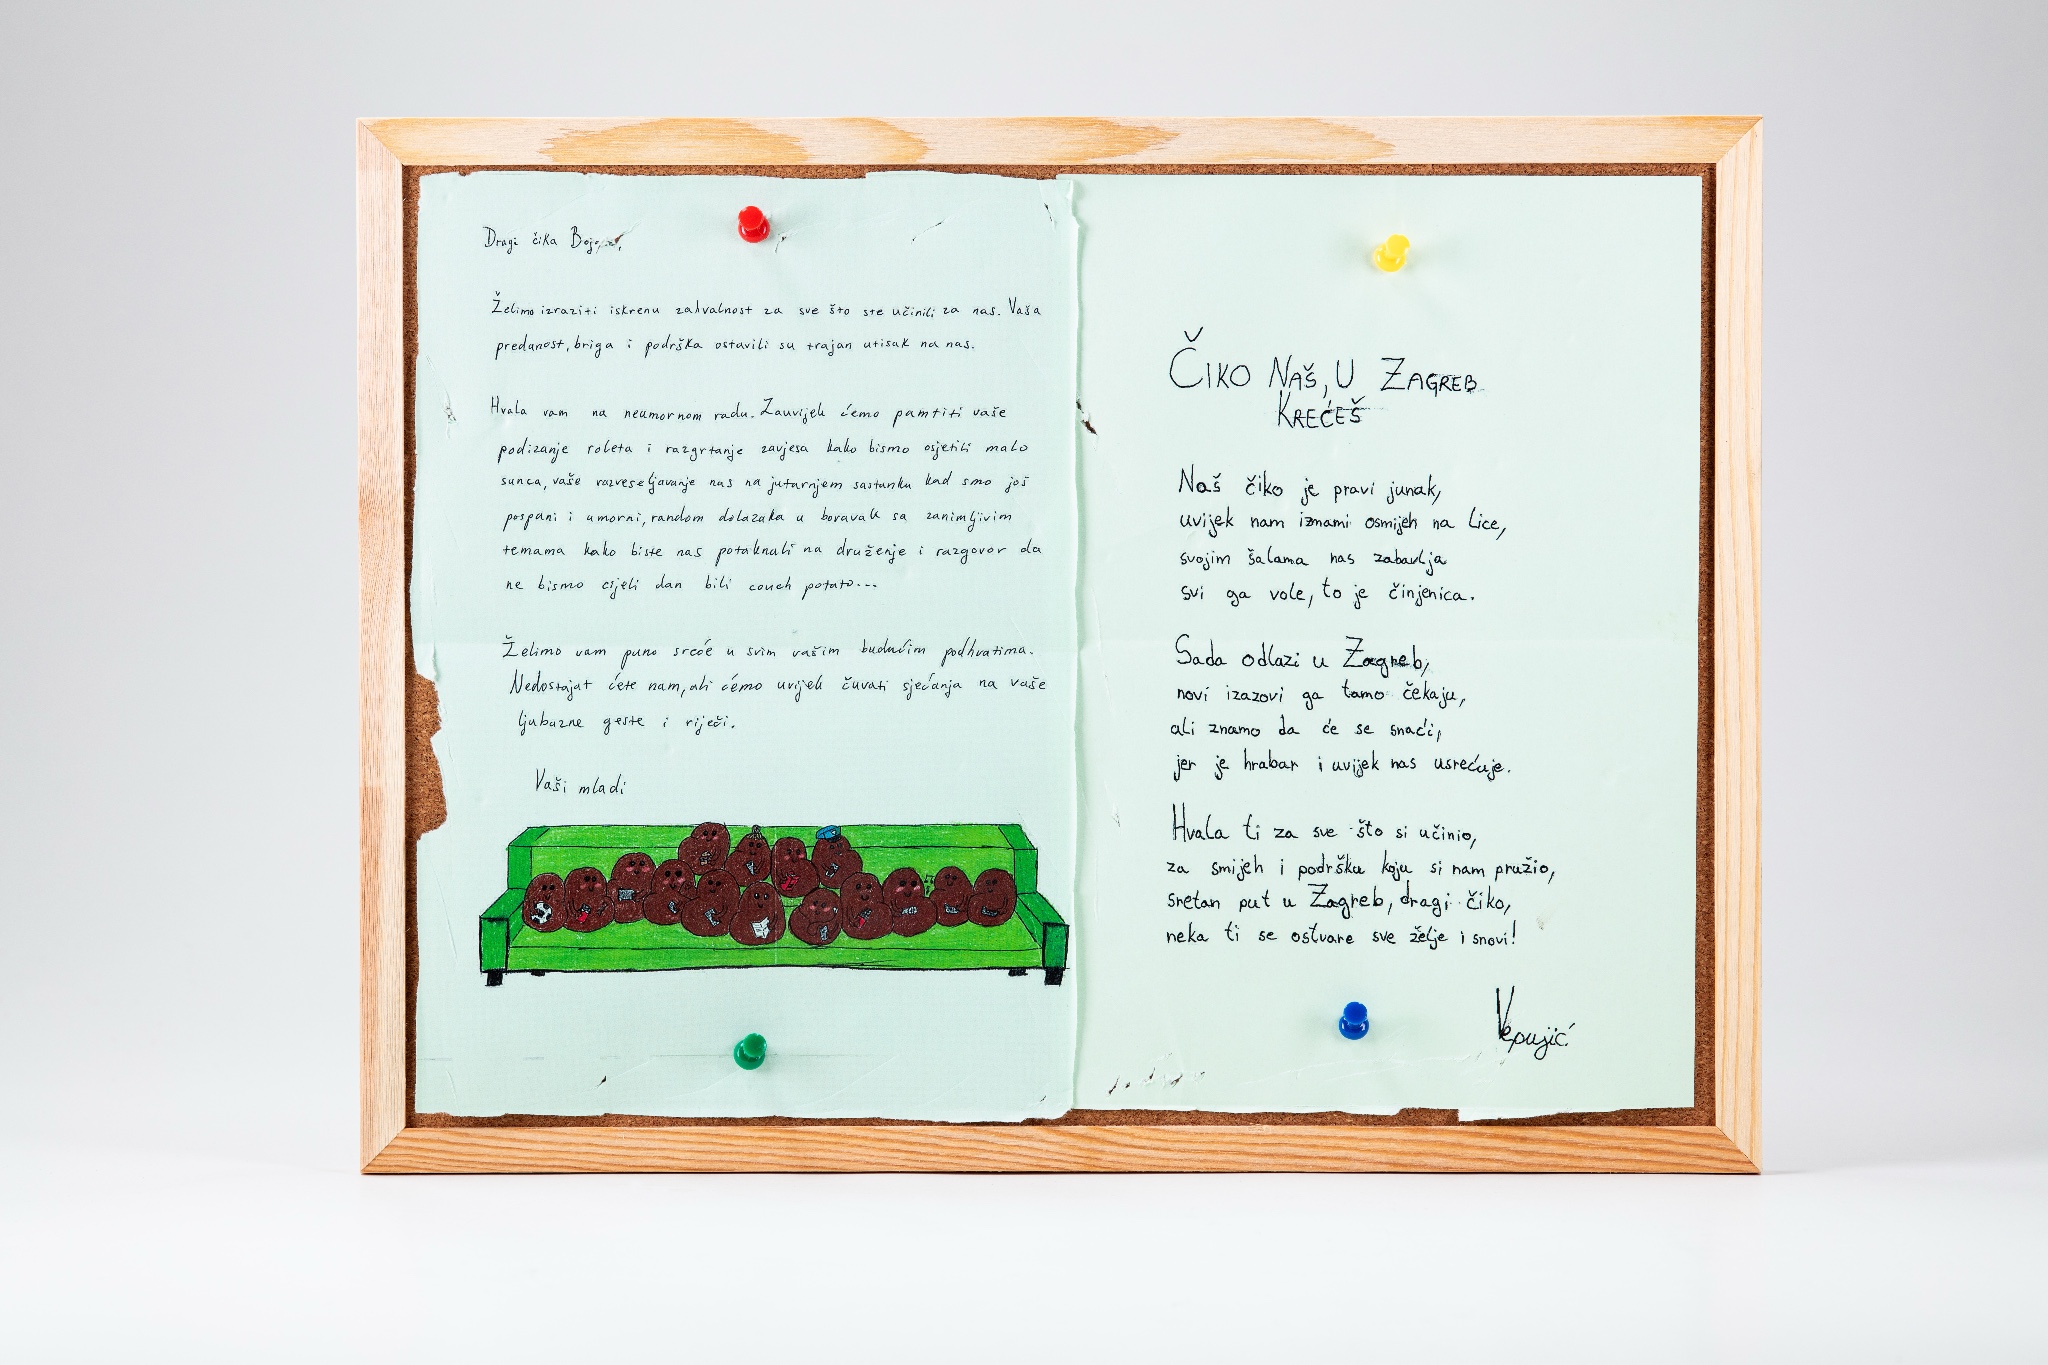 Dragi čika
Želimo izraziti iskrenu zahvalnost za sve što ste učinili za nas. Vaša
predanost, briga i podrška ostavili su trajan utisak na nas.
Hvala vam na neumornom radu. Zauvijek ćemo pamtiti vaše
podizanje roleta i razgrtanje zavjesa kako bismo osjetili malo
sunca, vaše razveseljavanje nas na jutarnjem sastanku kad smo još
pospani i umorni, random dolazaka u boravak sa zanimljivim
temama kako biste nas potaknuli na druženje i razgovor da
ne bismo cijeli dan bili couch potato...
Želimo vam puno sreće u svim vašim budućim podhvatima.
Nedostajat ćete nam, ali ćemo uvijek čuvati sjećanja na vaše
ljubazne geste i riječi.
Vaši mladi
ČIKO NAŠ, U ZAGREB
KREĆEŠ
Naš čiko je pravi junak,
uvijek nam izmami osmijeh na lice,
svojim šalama nas zabavlja
svi ga vole, to je činjenica.
Sada odlazi u Zagreb,
novi izazovi ga tamo čekaju,
ali znamo da će se snaći,
jer je hrabar i uvijek nas usrećuje.
Hvala ti za sve što si učinio,
za smijeh i podršku koju si nam pružio,
sretan put u Zagreb, dragi čiko,
neka ti se ostvare sve želje i snovi!
Vepujić